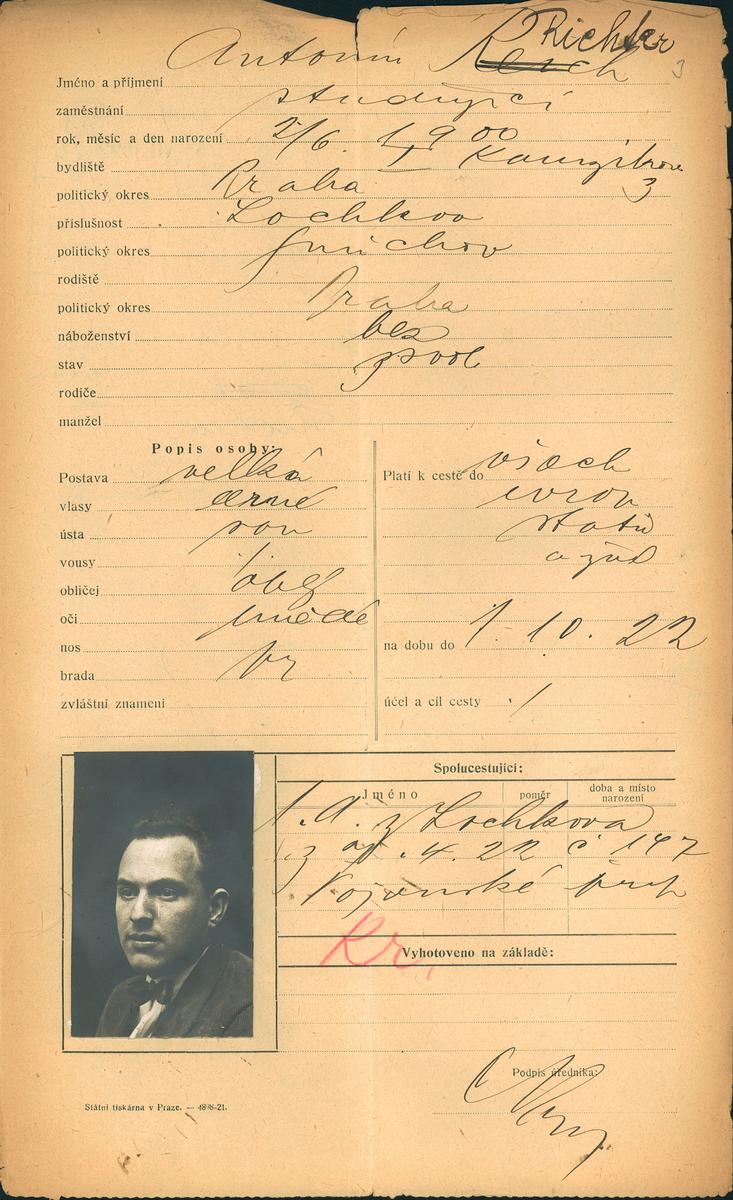 Richter
Jméno a příjmení Antonín Reich 3
zaměstnání studující
rok, měsíc a den narození 2/6. 1900
bydliště
politický okres Praha I 3
příslušnost Lochkov
politický okres Smíchov
rodiště
politický okres Praha
náboženství bez
stav svob
rodiče
manžel
Popis osoby:
Postava velká
vlasy černé
ústa
vousy /
obličej
oči hnědé
nos
brada
zvláštní znamení
Platí k cestě do všech
evrop
států
a zpě
na dobu do 1. 10. 22
účel a cíl cesty /
Spolucestující:
Jméno poměr doba a místo narození
z Lochkova
z 4. 22 č 147
Vojenské
Kr.
Vyhotoveno na základě:
Podpis úředníka:
Státní tiskárna v Praze. — 4898-21.